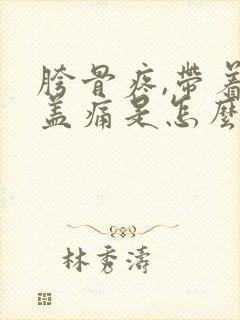 胯骨疼,帶着
盖痛是怎麼
林秀濤